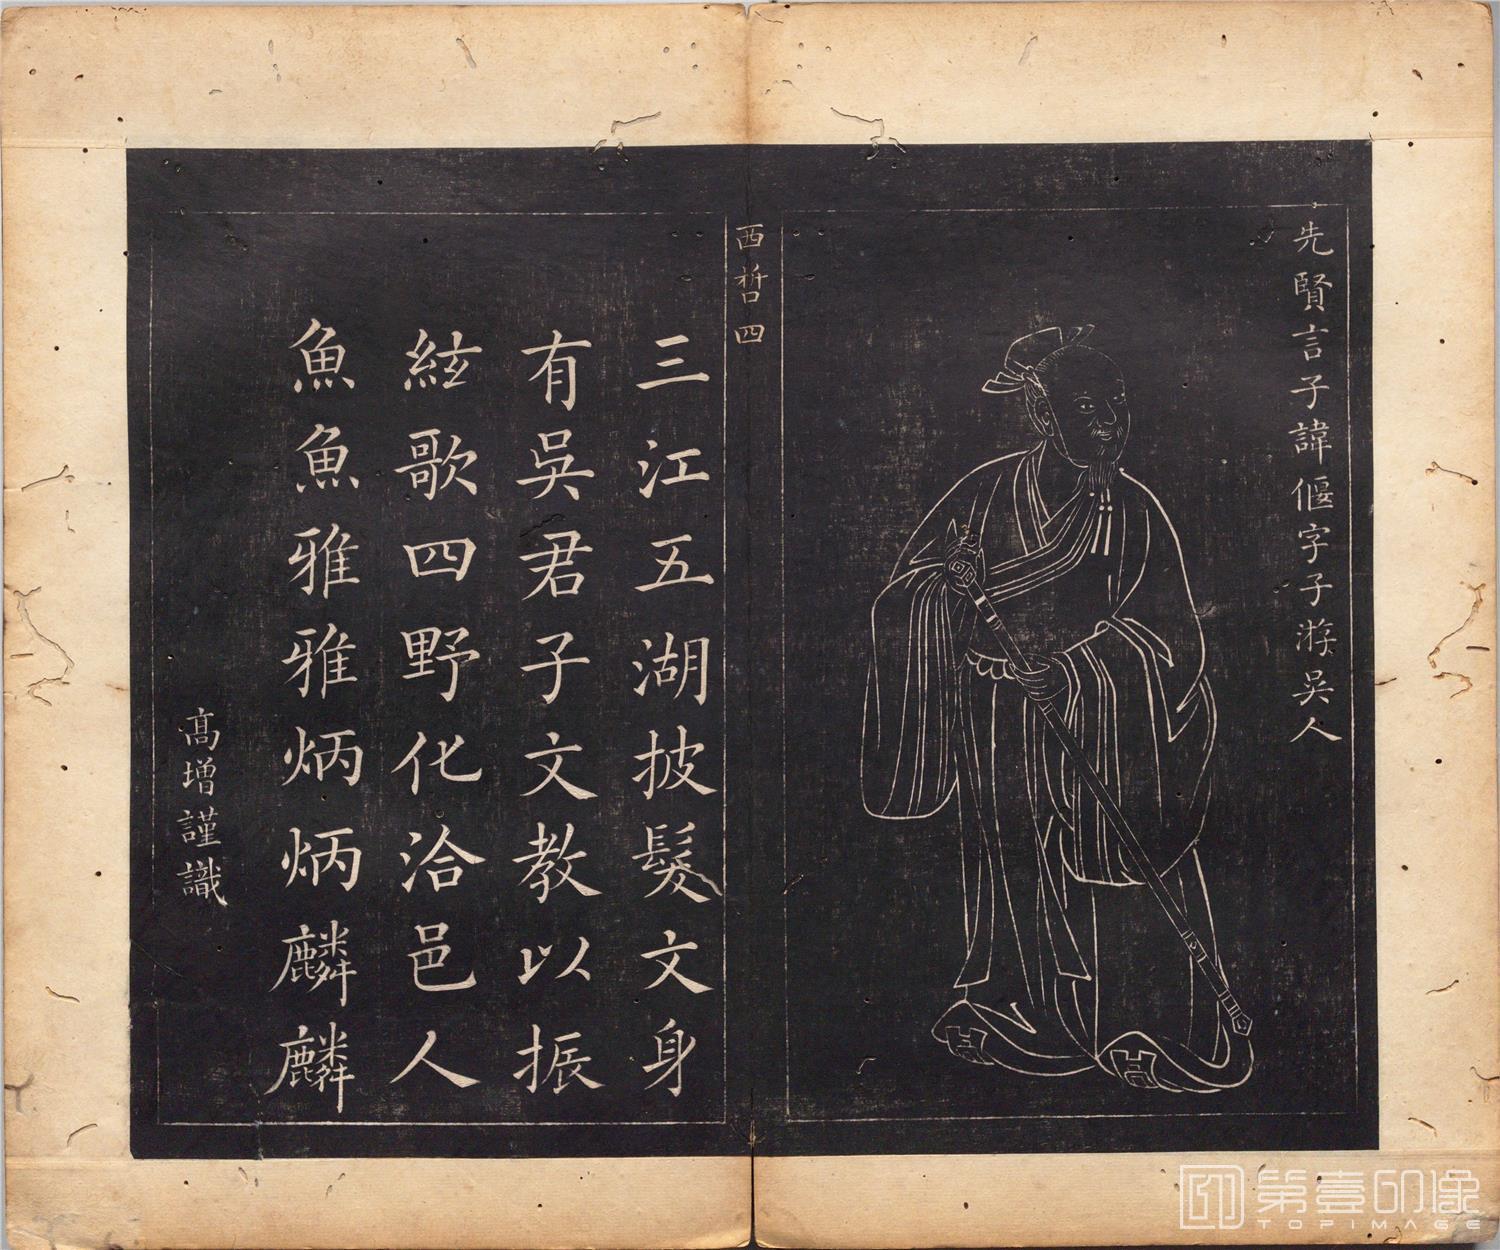 先賢言子諱偃字子游吳人
西哲四
三江五湖披髮文身
有吳君子文教以振
絃歌四野化洽邑人
魚魚雅雅炳炳麟麟
高增謹識
第壹印像
TOPIMAGE